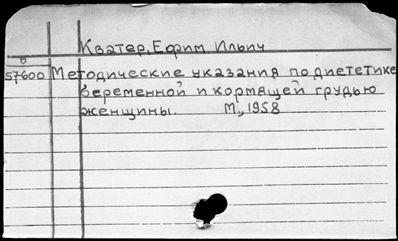 Кватер, Ефим Ильич
57600 Методические указания по диететике
беременной и кормящей грудью
женщины. М., 1958